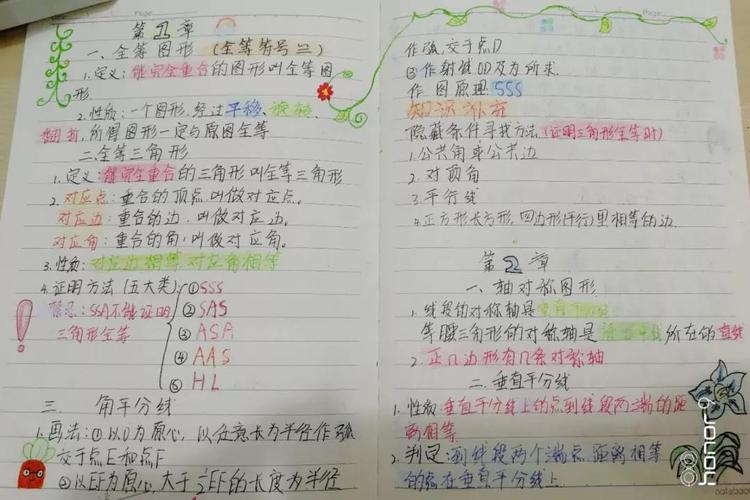 第1章
一、全等图形 (全等符号≌)
1.定义:能完全重合的图形叫全等图
形
2.性质:一个图形,经过平移、旋转、
翻折,所得图形一定与原图全等
二.全等三角形
1.定义:能完全重合的三角形叫全等三角形
2.对应点:重合的顶点,叫做对应点。
对应边:重合的边,叫做对应边。
对应角:重合的角,叫做对应角。
3.性质:对应边相等 对应角相等
4.证明方法(五大类) ①SSS
SSA不能证明 ②SAS
三角形全等 ③ASA
④AAS
⑤HL
三 角平分线
1.画法:①以O为原心,以任意长为半径作弧
交于点E和点F
②以EF为原心,大于½EF的长度为半径
作弧,交于点D
③作射线OD及为所求.
作图原理:SSS
知识补充
隐藏条件寻找方法(证明三角形全等时)
1.公共角或公共边
2.对顶角
3.平行线
4.正方形长方形,四边形(平行)里相等的边
第2章
一、轴对称图形
1.线段的对称轴是垂直平分线
等腰三角形的对称轴是 所在的直线
2.正几边形有几条对称轴
二.垂直平分线
1.性质:垂直平分线上的点到线段两端的距
离相等
2.判定:到线段两个端点距离相等
的点在垂直平分线上
honor9